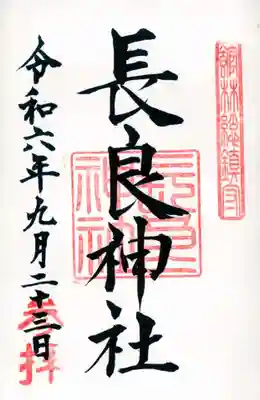 館林総鎮守
長良神社
長良神社
令和六年九月二十三日
参拝